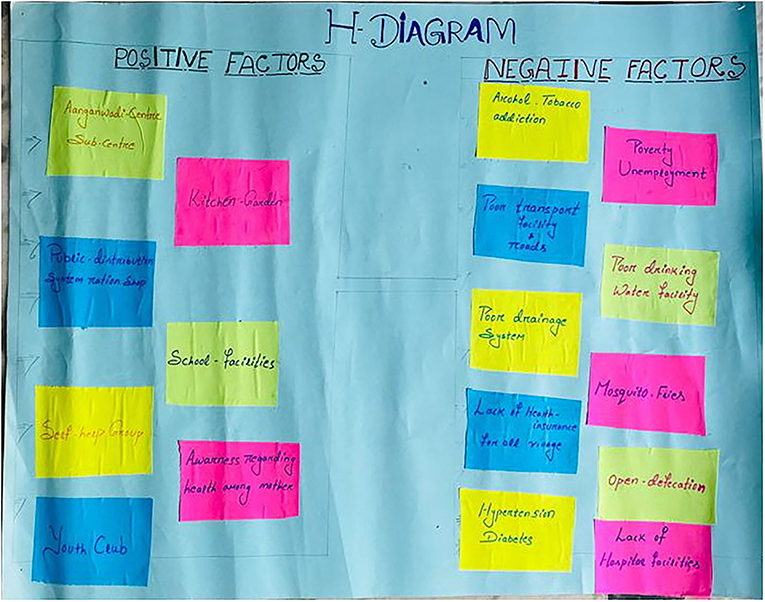 H-DIAGRAM
POSITIVE FACTORS
Aanganwadi-Centre
Sub-Centre
Kitchen-Garden
Public-distribution
System ration Shop
School-facilities
Self-help Group
Awareness regarding
health among mother
Youth Club
NEGAINE FACTORS
Alcohol-Tobacco
addiction
Poverty
Unemployment
Poor transport
facility
&
roads
Poor drinking
Water facility
Poor drainage
System
Mosquito-Flies
Lack of Health-
insurance
for all village
Open-defecation
Hypertension
Diabetes
Lack of
Hospital facilities